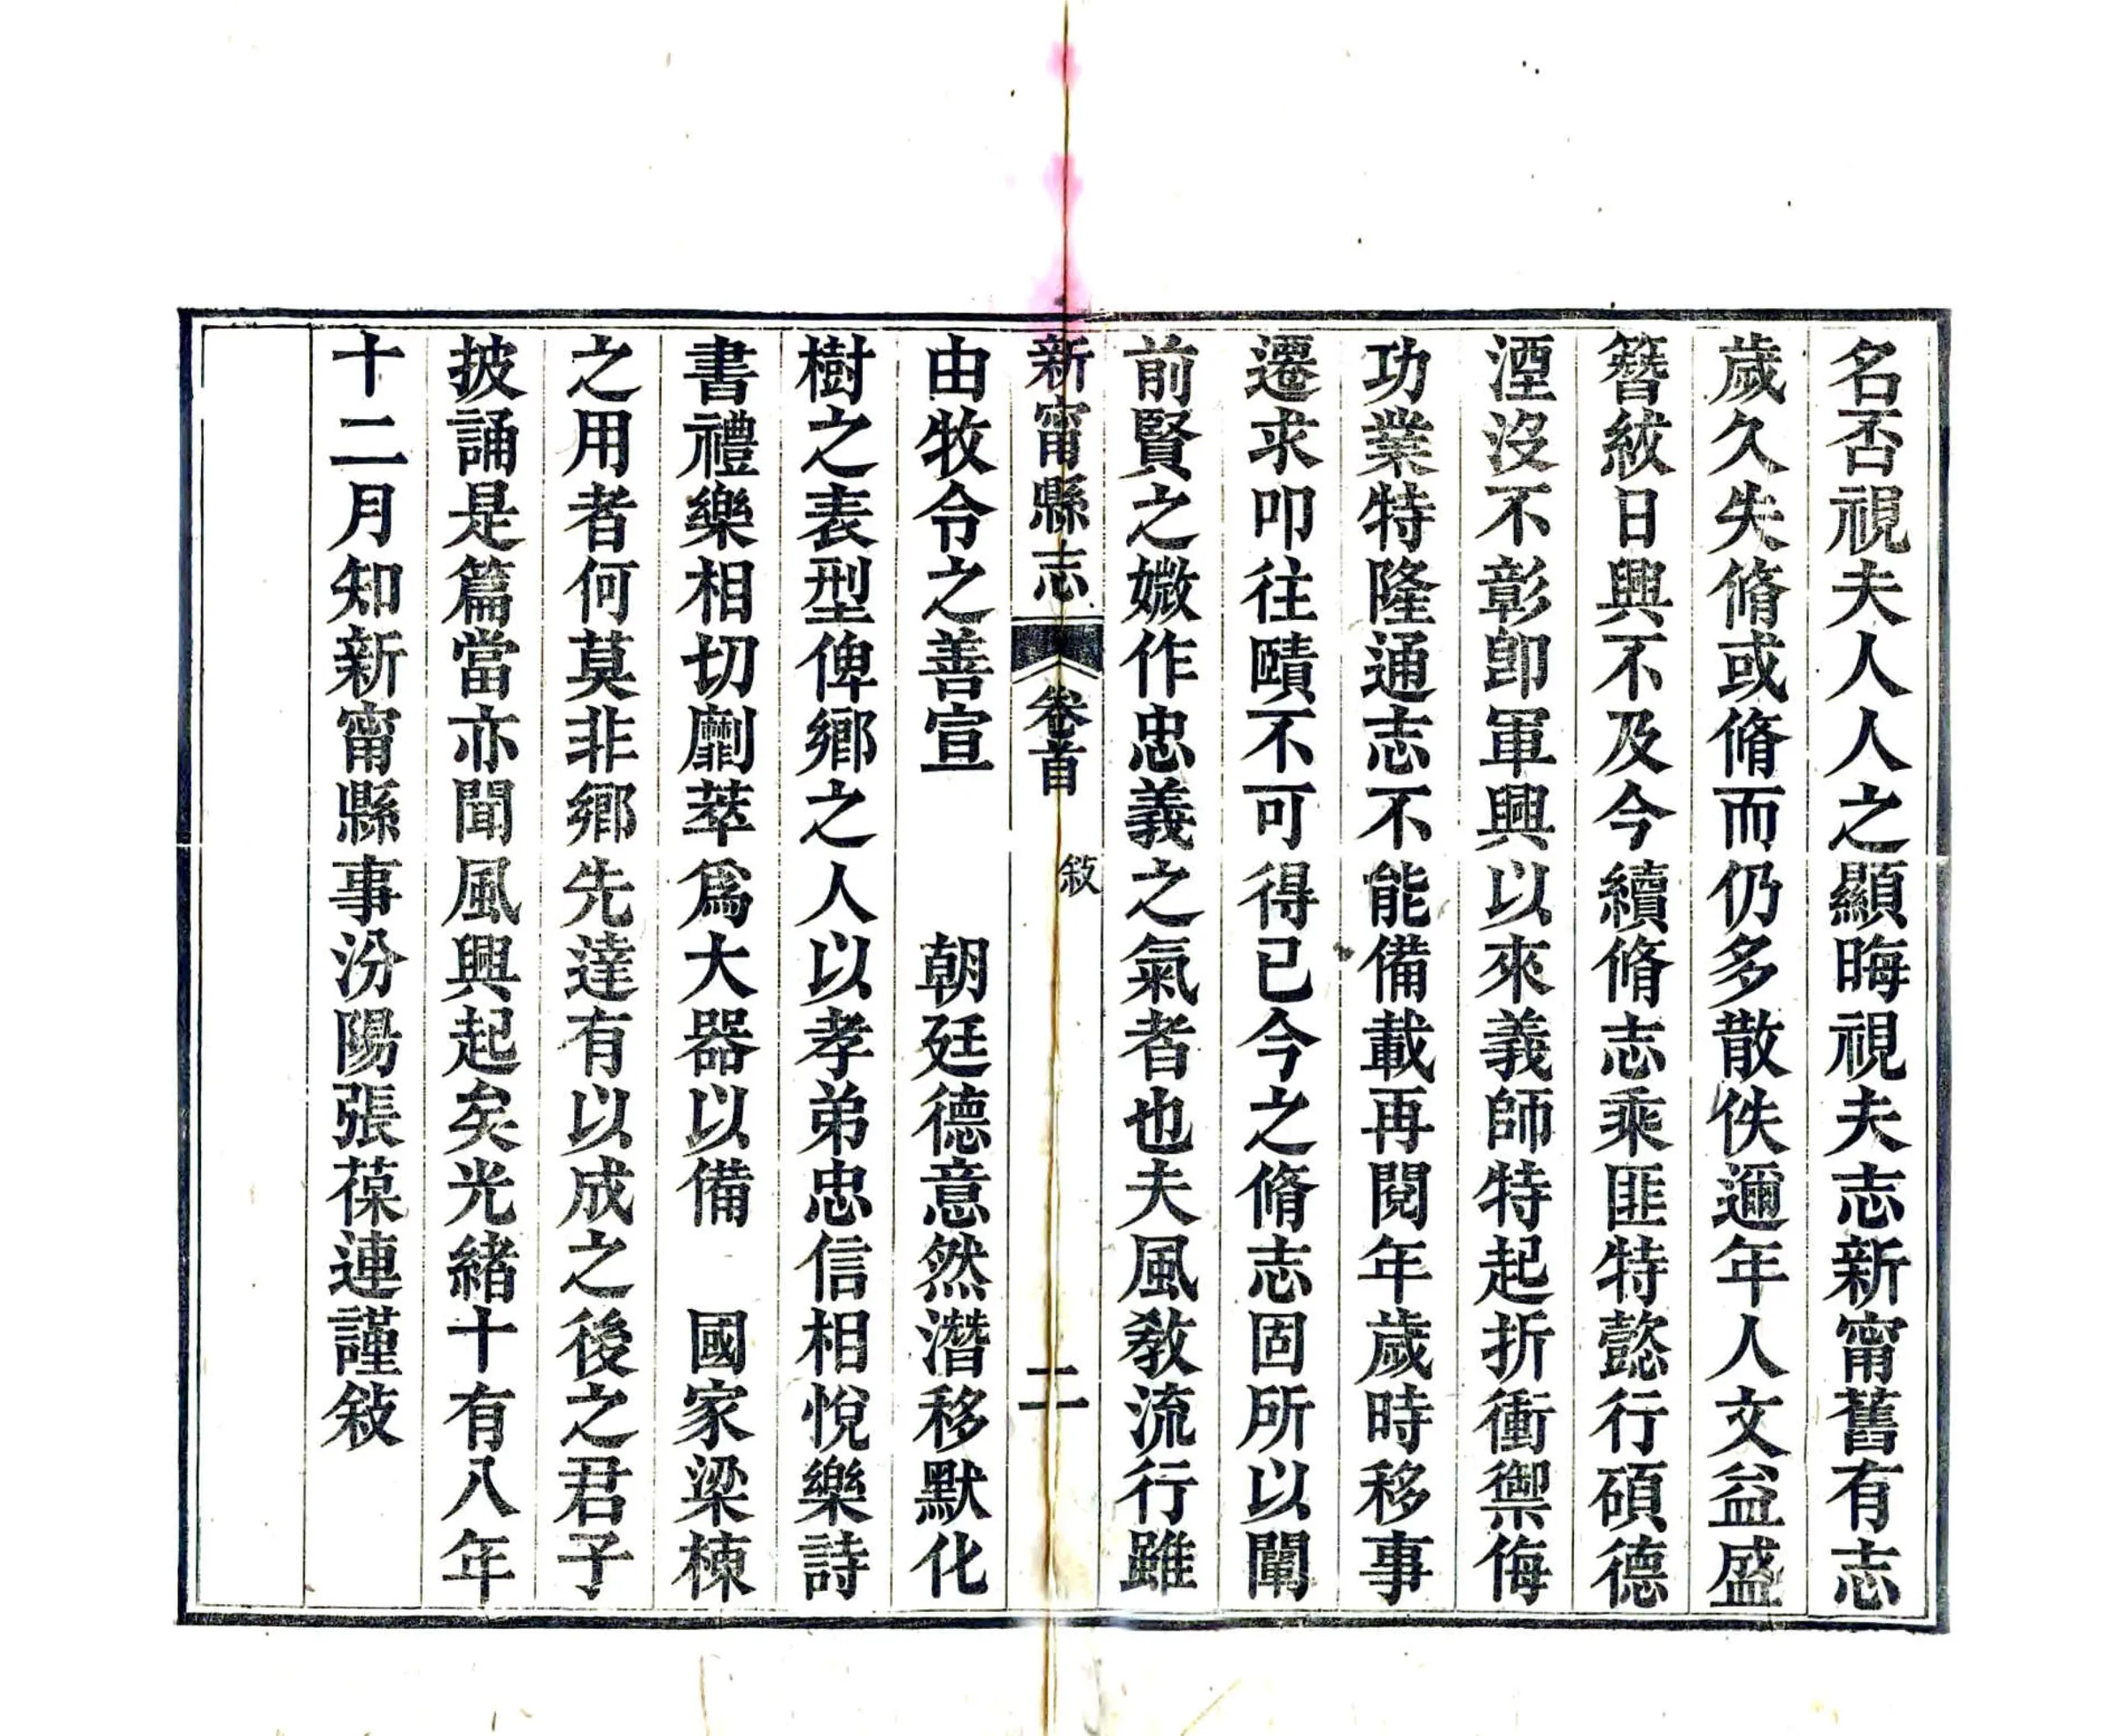 名否視夫人人之顯晦視夫志新甯舊有志
歲久失脩或脩而仍多散佚邇年人文益盛
簪紱日興不及今續脩志乘匪特懿行碩德
湮沒不彰卽軍興以來義師特起折衝禦侮
功業特隆通志不能備載再閱年歲時移事
遷求叩往賾不可得已今之脩志固所以闡
前賢之媺作忠義之氣者也夫風敎流行雖
新甯縣志 卷首 敘 二
由牧令之善宣 朝廷德意然潛移默化
樹之表型俾鄉之人以孝弟忠信相悅樂詩
書禮樂相切劘萃爲大器以備 國家梁棟
之用者何莫非鄉先達有以成之後之君子
披誦是篇當亦聞風興起矣光緒十有八年
十二月知新甯縣事汾陽張葆連謹敘